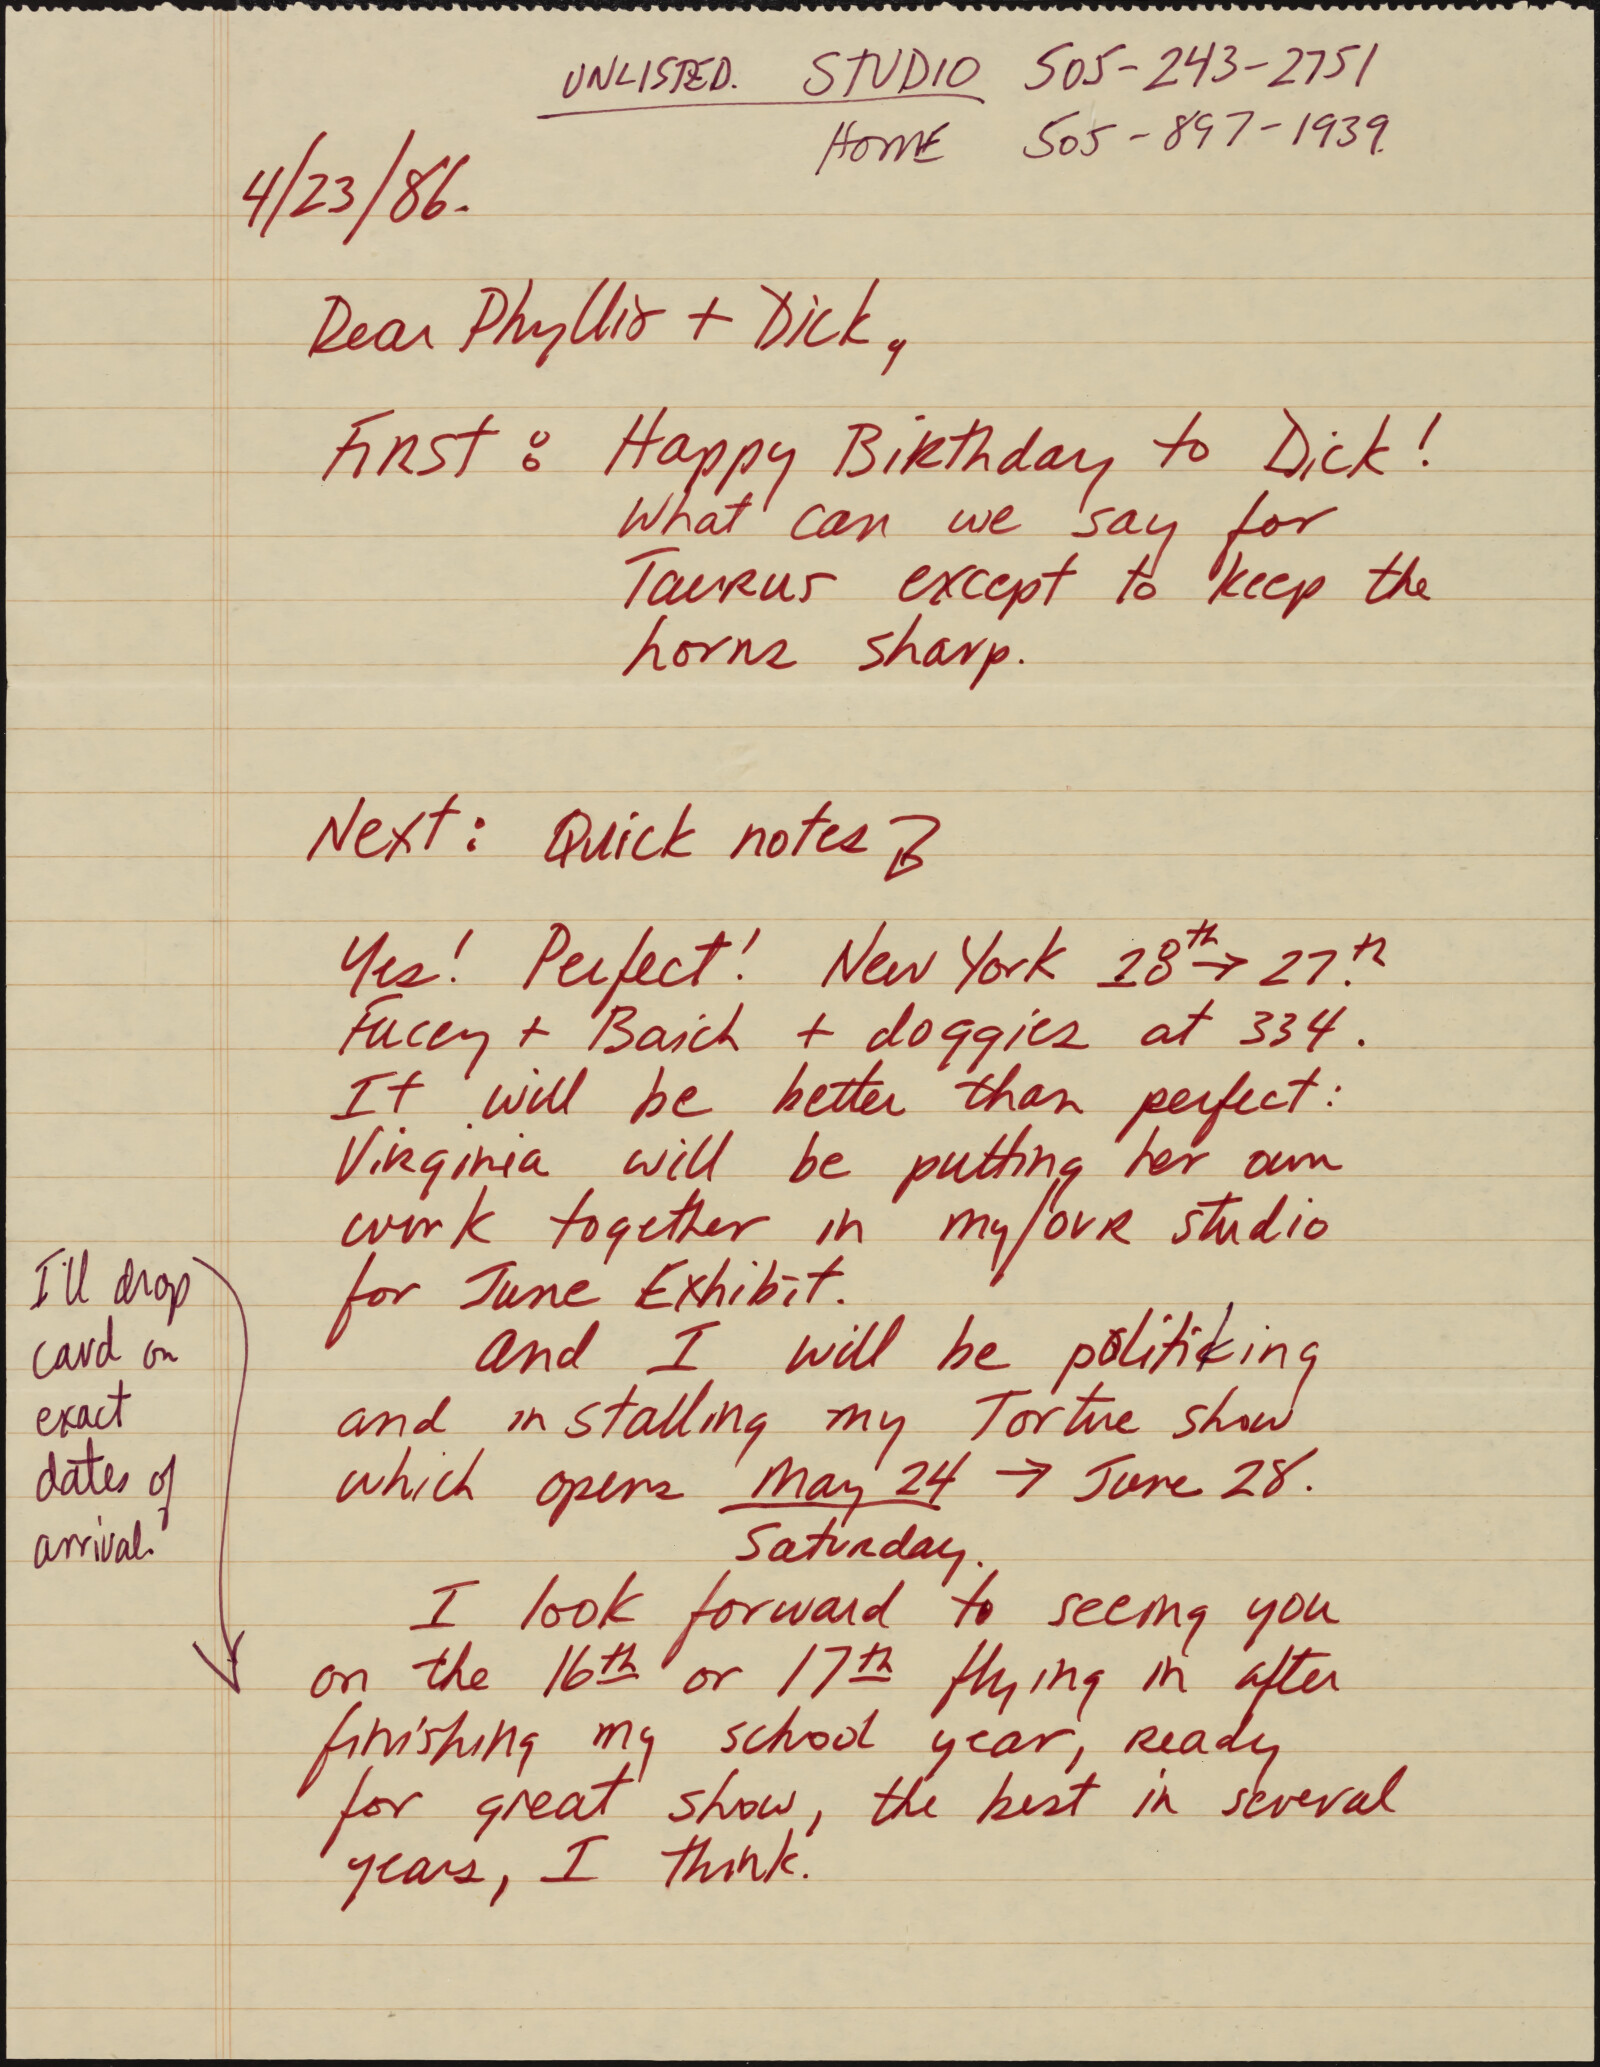 UNLISTED. STUDIO 505-243-2751
HOME 505-897-1939.
4/23/86.
Dear Phyllis + Dick,
First: Happy Birthday to Dick!
What can we say for
Taurus except to keep the
horns sharp.
Next: Quick notes
Yes! Perfect! New York 18th → 27th.
+ + doggies at 334.
It will be better than perfect:
Virginia will be putting her own
work together in my/our studio
for June Exhibit.
And I will be politiking
and installing my Tortue show
which opens May 24 → June 28.
Saturday.
I'll drop
card on
exact
dates of
arrival.
I look forward to seeing you
on the 16th or 17th flying in after
finishing my school year, ready
for great show, the best in several
years, I think.